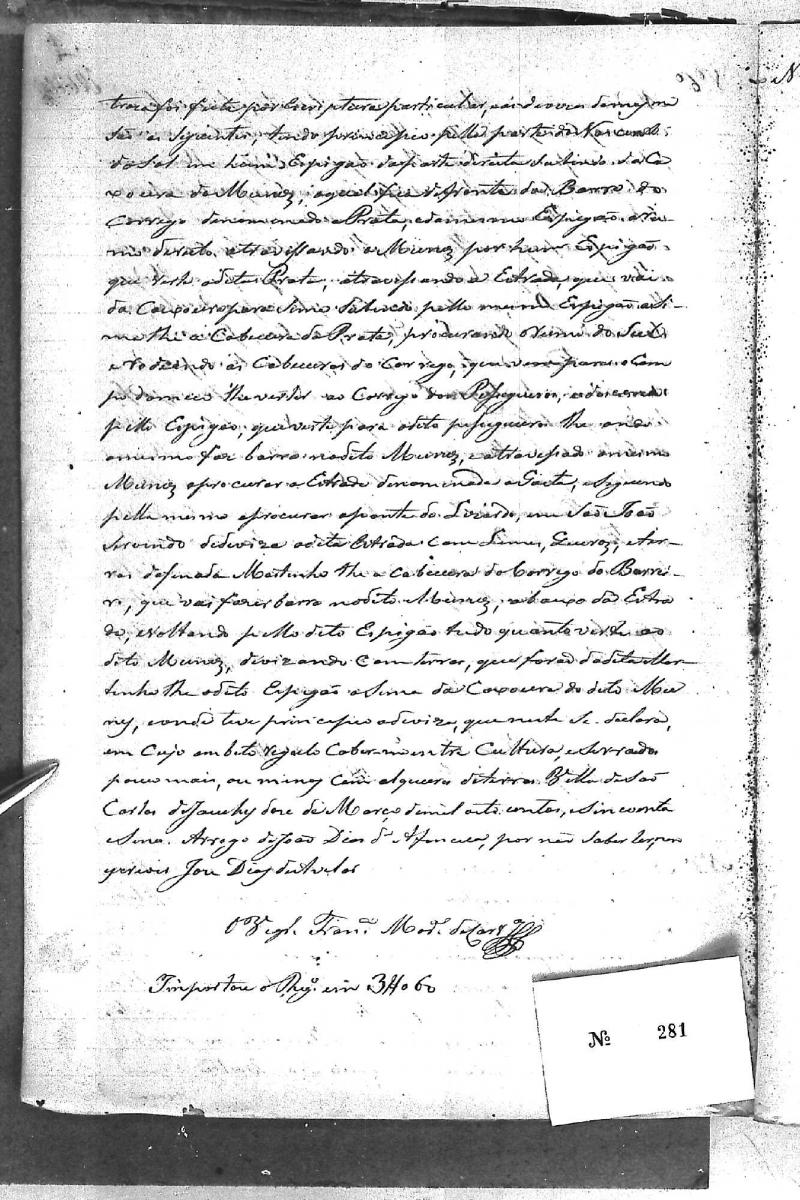 troca foi feita por Escriptura particular, as devizas da mesma
são as Siguintes, tendo principio pella parte do Nascente
do Sol em hum Espigão da parte direita da da Ca
xoeira do Munez, a qual fica defronte da Barra do
Corrego denominado a Prata, e do mesmo Espigão o ru-
mo direito atravessando o Munez por hum Espigão
que verte a dita Prata, atravessando a Estrada, que vai
da Caxoeira para Sima Subindo pello mesmo Espigão asi-
ma the a Cabeceira da Prata, procurando o rumo do Sul
e rodeando as Cabeceiras do Corrego, que vem para o Cam
po do meio the verter ao Corrego dos Pesegueiros, e
pello Espigão, que verte para o dito pesegueiro the onde
o mesmo faz barra no dito Munez, e atravessado o mesmo
Munez a procurar a Estrada denominada a Gaeta, e Seguindo
pella mesma a procurar a ponte do em São João
Servindo de deviza a dita Estrada Com Lemes, e ter-
ras da finada Martinha the a Cabeceira do Corrego do Barrei-
ro, que vai fazer barra no dito Munez, abaixo da Estra
da, e voltando pello dito Espigão tudo quanto verte ao
dito Munez, devizando Com terras, que forão da dita Mar-
tinha the o dito Espigão a Sima da Caxoeira do dito Mu
nez, e onde teve principio a deviza, que neste Se declara,
em Cujo ambito Cultura, e Serrados
pouco mais, ou menos Cem alqueres de terras. Villa de São
Carlos de Jacuhy doze de Março de mil oito centos, e Sincoenta
e Seis. Arrogo de João Dias d por não Saber ler, nem
escrever Joze Dias de Avelar
O Vigr.º Fran.co
Importou o Reg.º em 3#060
Nº 281